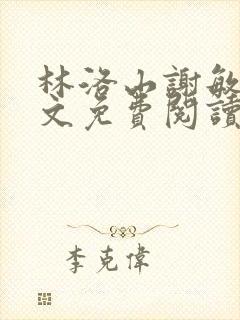 林洛山謝敏
文免費閱讀
李克偉